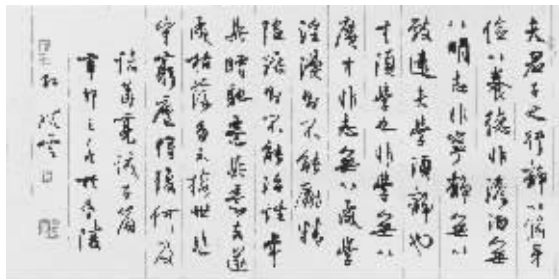 夫君子之行靜以修身
儉以養德非澹泊無
以明志非寧靜無以
致遠夫學須靜也
才須學也非學無以
廣才非志無以成學
淫漫則不能勵精
險躁則不能治性年
與時馳意與歲去遂
成枯落多不接世悲
守窮廬將復何及
諸葛亮誡子篇